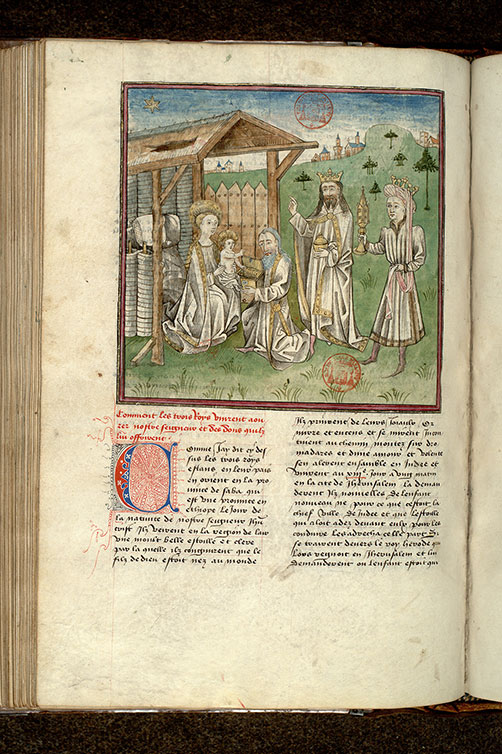 Comment les trois Roys vinrent aou-
rer nostre seigneur et des dons quilz
lui offrirent.
Comme Jay dit cy des
sus les trois roys
estans en leur pais
en orient en la pro
uince de saba qui
est vne prouince en
ethiope le Jour de
la natiuite de nostre seigneur Jhu
crist Jlz veirent en la region de lair
vne moult belle estoille et clere
par la quelle Jlz congneurent que le
filz de dieu estoit nez au monde
Jlz prinrent de leurs Jouaulx Or
mirre et encens et se mirent
au chemin montez sur dro
madares et dune amour et volente
sen alerent ensamble en Judee et
vindrent au Jour
en la cite de Jherusalem La deman
derent Jlz nouuelles de lenfant
nouueau ne pour ce que cestoit la
chief ville de Judee et que lestoille
qui aloit adez deuant eulx pour les
conduire les adrecha celle part Jlz
se trairent deuers le roy herode qui
lors regnoit en Jherusalem et lui
demanderent ou lenfant estoit qui